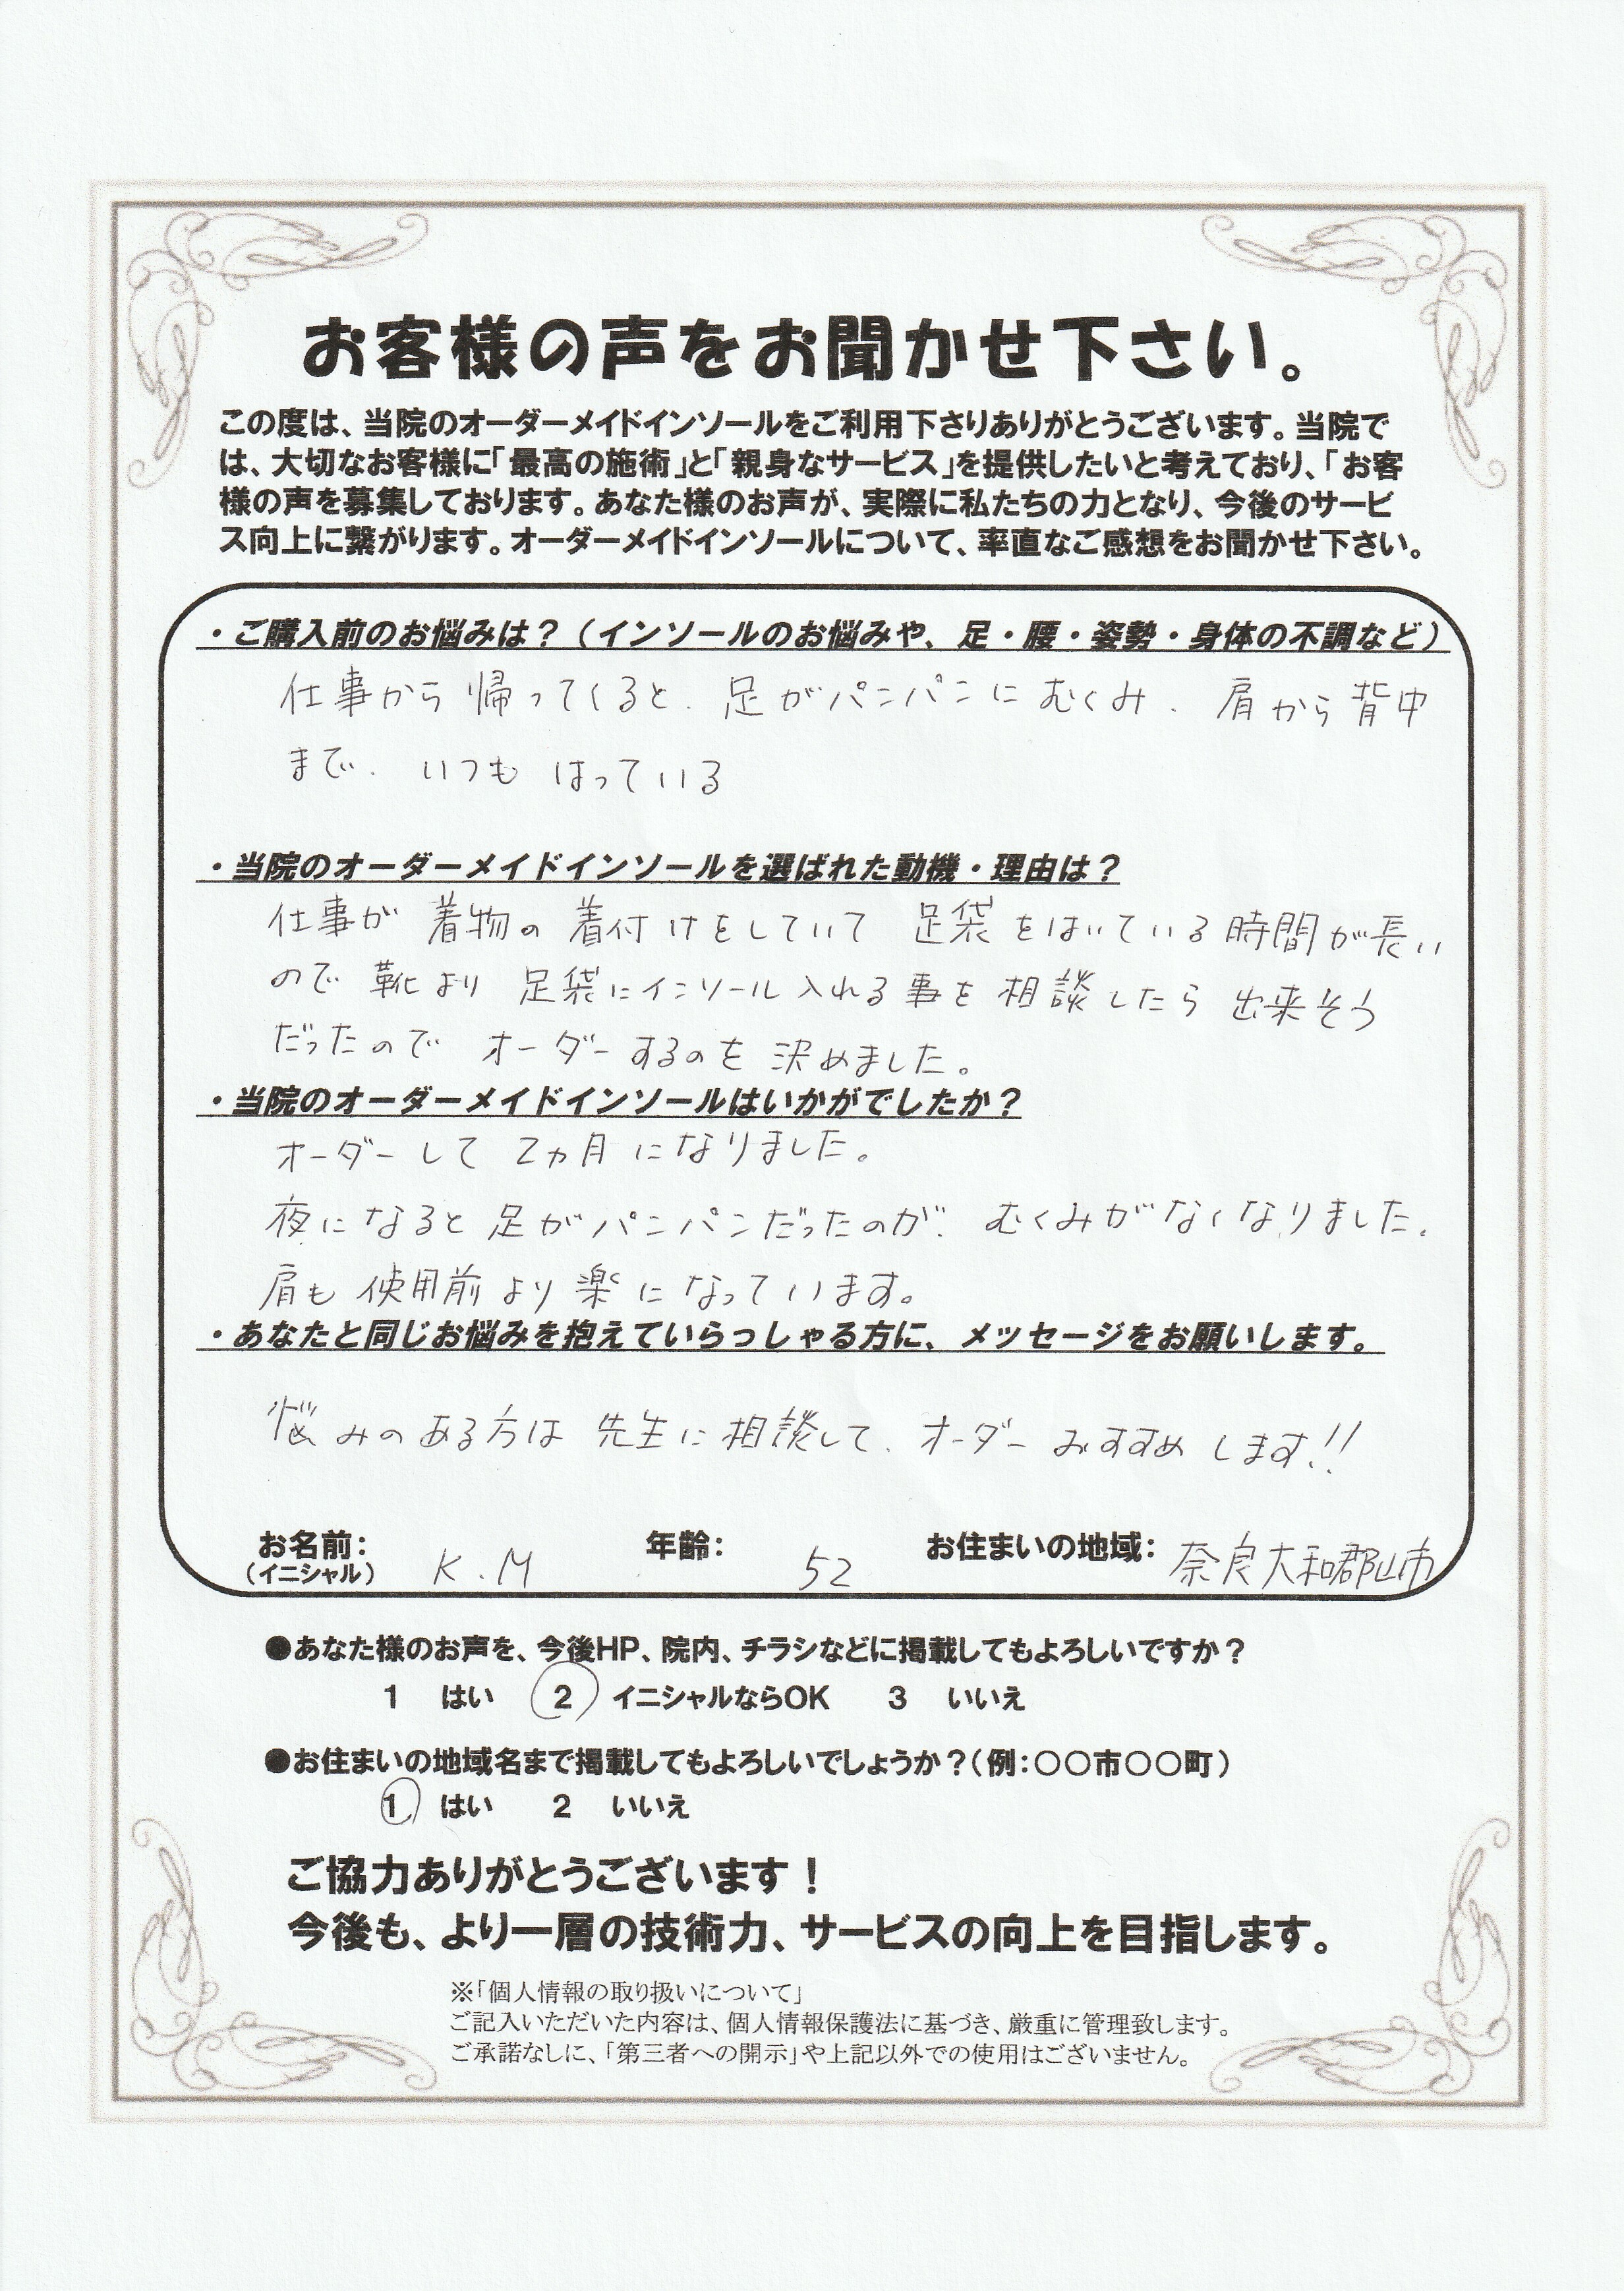 お客様の声をお聞かせ下さい。
この度は、当院のオーダーメイドインソールをご利用下さりありがとうございます。当院で
は、大切なお客様に「最高の施術」と「親身なサービス」を提供したいと考えており、「お客
様の声を募集しております。あなた様のお声が、実際に私たちの力となり、今後のサービ
ス向上に繋がります。オーダーメイドインソールについて、率直なご感想をお聞かせ下さい。
・ご購入前のお悩みは？（インソールのお悩みや、足・腰・姿勢・身体の不調など）
仕事から帰ってくると、足がパンパンにむくみ、肩から背中
まで、いつもはっている
・当院のオーダーメイドインソールを選ばれた動機・理由は？
仕事が着物の着付けをしていて 足袋をはいている時間が長い
ので靴より 足袋にインソール入れる事を相談したら出来そう
だったので オーダーするのを決めました。
・当院のオーダーメイドインソールはいかがでしたか？
オーダーして2ヵ月になりました。
夜になると足がパンパンだったのが、むくみがなくなりました。
肩も使用前より楽になっています。
・あなたと同じお悩みを抱えていらっしゃる方に、メッセージをお願いします。
悩みのある方は先生に相談して、オーダーおすすめします!!
お名前： K.M 年齢： 52 お住まいの地域： 奈良大和郡山市
（イニシャル）
●あなた様のお声を、今後HP、院内、チラシなどに掲載してもよろしいですか？
1 はい 2 イニシャルならOK 3 いいえ
●お住まいの地域名まで掲載してもよろしいでしょうか？（例：〇〇市〇〇町）
1 はい 2 いいえ
ご協力ありがとうございます！
今後も、より一層の技術力、サービスの向上を目指します。
※「個人情報の取り扱いについて」
ご記入いただいた内容は、個人情報保護法に基づき、厳重に管理致します。
ご承諾なしに、「第三者への開示」や上記以外での使用はございません。